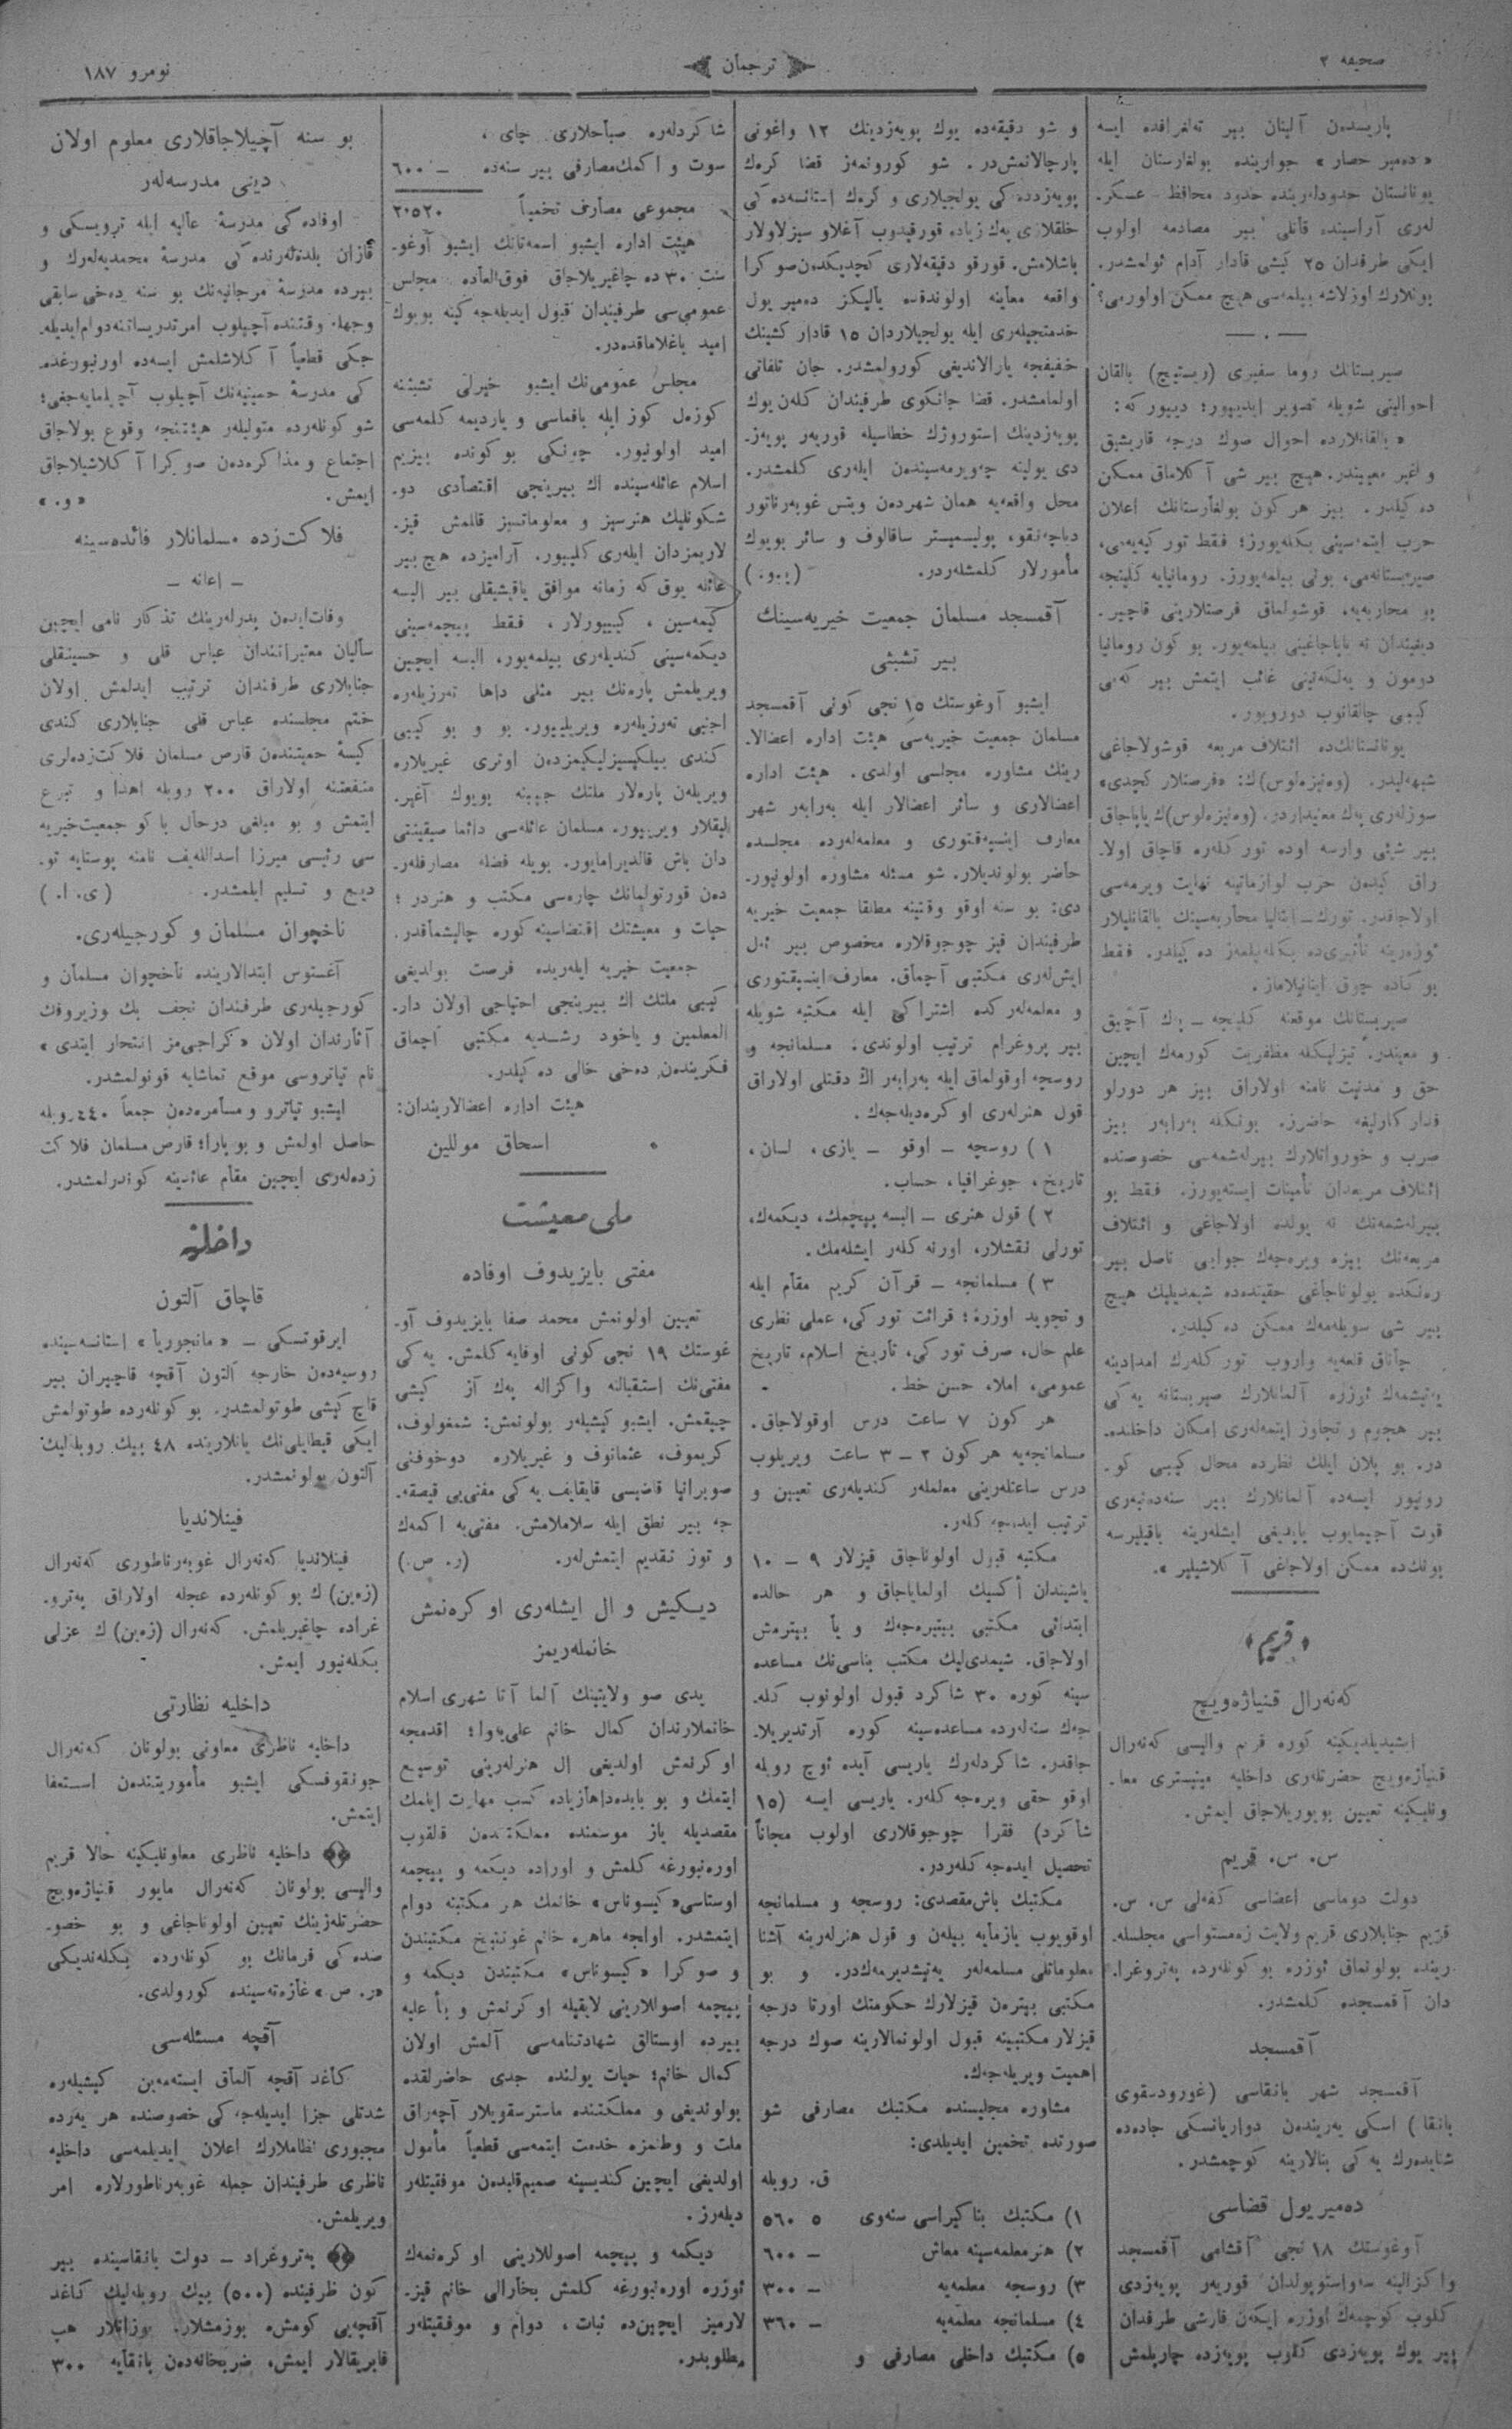 صحیفه ۲
ترجمان
نومرو ۱۸۷
پاریسدن آلینان بیر ته‌لغرافده ایسه
«ده‌میر حصار» جوارینده بولغارستان ایله
یونانستان حدودلەرینده حدود محافظ عسکر-
لەری آراسینده قانلی بیر مصادمه اولوب
ایکی طرفدان ۲۵ کیشی قادار آدام ئولمشدر.
بونلارك اوزلاشه بیلمه‌سی هیچ ممکن اولورمی؟
سیربستانك روما سفیری (ریستیچ) بالقان
احوالینی شویله تصویر ایدیپور؛ دیپور که:
« بالقانلارده احوال صوك درجه قاریشیق
و غیر معیندر. هیچ بیر شی آ کلاماق ممکن
ده کیلدر. بیز هر کون بولغارستانك اعلان
حرب ایتمه‌سینی بکله‌یورز؛ فقط تورکیه‌یه‌می،
صیربستانه‌می، بونی بیلمه‌یورز. رومانیایه کلینجه
بو محاربه‌یه، قوشولماق فرصتلارینی قاچیر.
دیغیندان نه یاپاجاغینی بیلمه‌یور. بو کون رومانیا
دومون و یه‌لکه‌نینی غائب ایتمش بیر که‌می
کیبی چالقانوب دورویور.
یونانستانك‌ده ائتلاف مربعه قوشولاجاغی
شبهه‌لیدر. (وه‌نیزه‌لوس)ك: «فرصتلار کچدی»
سوزلەری پك معنیداردر. (وه‌نیزه‌لوس)ك یاپاجاق
بیر شیئی وارسه اوده تورکلره قاچاق اولا-
راق کیدن حرب لوازماتینه نهایت ویرمه‌سی
اولاجاقدر. تورك - ایتالیا محاربه‌سینك بالقانلیلار
ئوزه‌رینه تأثیری‌ده بکله‌نیلمه‌ز ده کیلدر. فقط
بو کاده چوق اینانیلاماز.
سیربستانك موقعنه کلینجه - پك آچیق
و معیندر. تیزلیکله مظفریت کورمه‌ك ایچین
حق و مدنیت نامنه اولاراق بیز هر دورلو
فدارکارلیغه حاضرز. بونکله به‌رابه‌ر بیز
صرب و خوروانلارك بیرله‌شمه‌سی خصوصنده
ائتلاف مربعدان تأمینات ایسته‌یورز. فقط بو
بیرله‌شمه‌نك نه یولده اولاجاغی و ائتلاف
مربعه‌نك بیزه ویره‌جه‌ك جوابی ناصل بیر
ره‌نکده بولوناجاغی حقینده‌ده شیمدیلیك هیچ
بیر شی سویله‌مه‌ك ممکن ده کیلدر.
چاناق قلعه‌یه واروب تورکلەرك امدادینه
یه‌تیشمه‌ك ئوزره آلمانلارك صیربستانه یه‌کی
بیر هجوم و تجاوز ایتمه‌لەری امکان داخلنده-
در. بو پلان ایلك نظرده محال کیبی کو-
رونیور ایسه‌ده آلمانلارك بیر سنه‌ده‌نبه‌ری
قورت آچیمایوب یاپدیغی ایشلەرینه باقیلیرسه
بونك‌ده ممکن اولاجاغی آ کلاشیلیر».
«قریم»
که‌نه‌رال قنیاژه‌ویچ
ایشیدیلدیکینه کوره قریم والیسی که‌نه‌رال
قنیاژه‌ویچ حضرتلەری داخلیه مینیستری معا-
ونلیکینه تعیین بویوریلاجاق ایمش.
س. س. قریم
دولت دوماسی اعضاسی کفه‌لی س. س.
قریم جنابلاری قریم ولایت زه‌مستواسی مجلسله-
رینده بولونماق ئوزره بو کونلەرده په‌تروغرا-
دان آقمسجده کلمشدر.
آقمسجد
آقمسجد شهر بانقاسی (غورودسقوی
بانقا) اسکی یه‌ریندەن دوارانسکی جاده‌ده
شنایدەرك یه‌کی بنالارینه کوچمشدر.
ده‌میریول قضاسی
آوغوستك ۱۸ نجی آقشامی آقمسجد
واکزالینه سه‌واستوپولدان قوریه‌ر پویه‌زدی
کلوب کوچمه‌ك اوزره ایکه‌ن قارشی طرفدان
بیر یوك پویه‌زدی کلوب پویه‌زده چارپلمش
و شو دقیقه‌ده یوك پویه‌زدینك ۱۲ واغونی
پارچالانمش‌در. شو کورونمه‌ز قضا کره‌ك
پویه‌زدده کی یولجیلاری و کره‌ك استانسه‌ده‌کی
خلقلاری په‌ك زیاده قورقیدوب آغلاو سیزلاولار
باشلامش. قورقو دقیقه‌لاری کچدیکدەن‌صوکرا
واقعه معاینه اولوندقده یالیکز ده‌میر یول
خدمتجیلەری ایله یولجیلاردان ۱۵ قادار کشینك
خفیفجه یارالاندیغی کورولمشدر. جان تلفاتی
اولمامشدر. قضا جانکوی طرفیندان کلەن یوك
پویه‌زدینك استوروژك خطاسیله قوریه‌ر پویه‌ز-
دی یولینه چه‌ویرمه‌سیندەن ایله‌ری کلمشدر.
محل واقعه‌یه همان شهردەن ویتس غوبه‌رناتور
دیاچه‌نقو، پولیسمیستر ساقالوف و سائر بویوك
مأمورلار کلمشله‌ردر. (بیو.)
آقمسجد مسلمان جمعیت خیریه‌سینك
بیر تشبثی
ایشبو آوغوستك ۱۵ نجی کونی آقمسجد
مسلمان جمعیت خیریه‌سی هیئت اداره اعضالا-
رینك مشاوره مجلسی اولدی. هیئت اداره
اعضالاری و سائر اعضالار ایله به‌رابه‌ر شهر
معارف اینسپه‌قتوری و معلمه‌لەرده مجلسده
حاضر بولوندیلار. شو مسئله مشاوره اولونیور-
دی: بو سنه اوقو وقتینه مطلقا جمعیت خیریه
طرفیندان قیز چوجوقلاره مخصوص بیر ئه‌ل
ایش‌لەری مکتبی آچماق. معارف اینسپقتوری
و معلمه‌لەرکده اشتراکی ایله مکتبه شویله
بیر پروغرام ترتیب اولوندی: مسلمانجه و
روسچه اوقولماق ایله به‌رابه‌ر اك دقتلی اولاراق
قول هنرلەری او کره‌دیله‌جه‌ك.
۱) روسچه - اوقو - یازی، لسان،
تاریخ، جوغرافیا، حساب.
۲) قول هنری - البسه پیچمك، دیکمه‌ك،
تورلی نقشلار، اورنه کلەر ایشله‌مك.
۳) مسلمانجه - قرآن کریم مقام ایله
و تجوید اوزره؛ قرائت تورکی، عملی نظری
علم حال، صرف تورکی، تأریخ اسلام، تاریخ
عمومی، املا، حسن خط.
هر کون ۷ ساعت درس اوقولاجاق.
مسلمانجه‌یه هر کون ۲ - ۳ ساعت ویریلوب
درس ساعتلەرینی معلمه‌لەر کندیلەری تعیین و
ترتیب ایده‌جه کلەر.
مکتبه قبول اولوناجاق قیزلار ۹ - ۱۰
یاشیندان أکسیك اولمایاجاق و هر حالده
ابتدائی مکتبی بیتیره‌جه‌ك و یا بیترمش
اولاجاق. شیمدی‌لیك مکتب بناسی‌نك مساعده
سینه کوره ۳۰ شاکرد قبول اولونوب کله-
جه‌ك سنه‌لەرده مساعده‌سینه کوره آرتدیریلا-
جاقدر. شاکردلەرك یاریسی آیده ئوچ روبله
اوقو حقی ویره‌جه کلەر. یاریسی ایسه (۱۵
شاکرد) فقرا چوجوقلاری اولوب مجاناً
تحصیل ایده‌جه کلەردر.
مکتبك باش‌مقصدی: روسچه و مسلمانجه
اوقویوب یازمایه بیلەن و قول هنرلەرینه آشنا
معلوماتلی مسلمه‌لەر یه‌تیشدیرمه‌ك‌در. و بو
مکتبی بیترەن قیزلارك حکومتك اورتا درجه
قیزلار مکتبینه قبول اولونمالارینه صوك درجه
اهمیت ویریله‌جه‌ك.
مشاوره مجلیسنده مکتبك مصارفی شو
صورتده تخمین ایدیلدی:
ق. روبله
۱) مکتبك بنا کیراسی سنه‌وی ۵ ۵۶۰
۲) هنرمعلمه‌سینه معاش - ۶۰۰
۳) روسچه معلمه‌یه - ۳۰۰
٤) مسلمانجه معلمه‌یه - ۳۶۰
۵) مکتبك داخلی مصارفی و
شاکردلەره صباحلاری چای،
سوت و اکمك‌مصارفی بیر سنه‌ده - ۶۰۰
مجموعی مصارف تخمیناً ۲۰۵۲۰
هیئت اداره ایشبو اسمه‌تانك ایشبو آوغو-
ستـ ۳۰ ده چاغیریلاجاق فوق‌العاده مجلس
عمومی‌سی طرفیندان قبول ایدیله‌جه کینه بویوك
امید باغلاماقده‌در.
مجلس عمومی‌نك ایشبو خیرلی تشبثنه
کوزه‌ل کوز ایله باقماسی و یاردیمه کلمه‌سی
امید اولونیور. چونکی بو کونده بیزیم
اسلام عائله‌سینده اك بیرینجی اقتصادی دو-
شکونلیك هنرسیز و معلوماتسیز قالمش قیز-
لاریمزدان ایله‌ری کلیپور. آرامیزده هیچ بیر
عائله یوق که زمانه موافق یاقیشیقلی بیر البسه
کیمه‌سین، کییپورلار، فقط پیچمه‌سینی
دیکمه‌سینی کندیلەری بیلمه‌یور، البسه ایچین
ویریلمش پاره‌نك بیر مثلی داها ته‌رزیلەره
اجنبی ته‌رزیلەره ویریلیپور. بو و بو کیبی
کندی بیلکیسیزلیکیمزدەن اوتری غیریلاره
ویریلەن پاره‌لار ملتك جیبینه بویوك آغیر-
لیقلار ویریپور. مسلمان عائله‌سی دائما صیقینتی
دان باش قالدیرامایور. بویله فضله مصارفلەر-
دەن قورتولمانك چاره‌سی مکتب و هنردر؛
حیات و معیشتك اقتضاسینه کوره چالیشماقدر.
جمعیت خیریه ایله‌ریده فرصت بولدیغی
کیبی ملتك اك بیرینجی احتیاجی اولان دار-
المعلمین و یاخود رشدیه مکتبی آچماق
فکریندەن ده‌خی خالی ده کیلدر.
هیئت اداره اعضالاریندان:
اسحاق موللین
ملی معیشت
مفتی بایزیدوف اوفاده
تعیین اولونمش محمد صفا بایزیدوف آو-
غوستك ۱۹ نجی کونی اوفایه کلمش. یه‌کی
مفتی‌نك استقبالنه واکزاله په‌ك آز کیشی
چیقمش. ایشبو کیشیلەر بولونمش: شمغولوف،
کریموف، عثمانوف و غیریلاره دوخوفنی
صوبرانیا قاضیسی قاپقایف یه‌کی مفتی‌یی قیصقه-
جه بیر نطق ایله سلاملامش. مفتی‌یه اکمه‌ك
و توز تقدیم ایتمش‌لەر. (ر. ص.)
دیکیش و ال ایشلەری او کره‌نمش
خانملەریمز
یدی صو ولایتینك آلما آتا شهری اسلام
خانملارندان کمال خانم علی‌یه‌وا؛ اقدمجه
او کرنمش اولدیغی ال هنرلەرینی توسیع
ایتمك و بو بابده‌داهازیاده کسب مهارت ایلمك
مقصدیله یاز موسمنده مملکتدەن قالقوب
اوره‌نبورغه کلمش و اوراده دیکمه و پیچمه
اوستاسی «کیسوناس» خانمك هر مکتبنه دوام
ایتمشدر. اولجه ماهره خانم غوننیخ مکتبندن
و صوکرا «کیسوناس» مکتبندن دیکمه و
پیچمه اصوللارینی لایقیله او کرنمش و بأ علیه
بیرده اوستالق شهادتنامه‌سی آلمش اولان
کمال خانم؛ حیات یولنده جدی حاضرلقده
بولوندیغی و مملکتنده ماسترسقویلار آچه‌راق
ملت و وطنمزه خدمت ایتمه‌سی قطعیاً مأمول
اولدیغی ایچین کندیسینه صمیم‌قلبدەن موفقیتلەر
دیله‌رز.
دیکمه و پیچمه اصوللارینی او کره‌نمه‌ك
ئوزره اوره‌نبورغه کلمش بخارالی خانم قیز-
لارمیز ایچین‌ده ثبات، دوام و موفقیتلەر
مطلوبدر.
بو سنه آچیلاجاقلاری معلوم اولان
دینی مدرسه‌لەر
اوفاده‌کی مدرسهٔ عالیه ایله ترویسکی و
قازان بلده‌لەرنده‌کی مدرسهٔ محمدیه‌لەرك و
بیرده مدرسهٔ مرجانیه‌نك بو سنه ده‌خی سابقی
وجهله وقتنده آچیلوب امر تدریساتنه دوام ایدیله-
جکی قطعیاً آ کلاشلمش ایسه‌ده اورنبورغده-
کی مدرسهٔ حسینیه‌نك آچیلوب آچیلمایه‌جغی؛
شو کونلەرده متولیلەر هیئتنجه وقوع بولاجاق
اجتماع و مذا کره‌دەن صوکرا آ کلاشیلاجاق
ایمش. «و.»
فلا کت‌زده مسلمانلار فائده‌سینه
- اعانه -
وفات‌ایدەن پدرلەرینك تذکار نامی ایچین
سألیان معتبراتندان عباس قلی و حسینقلی
جنابلاری طرفندان ترتیب ایدلمش اولان
ختم مجلسنده عباس قلی جنابلاری کندی
کیسهٔ حمیتندەن قارص مسلمان فلا کت‌زده‌لری
منفعتنه اولاراق ۲۰۰ روبله اهدا و تبرع
ایتمش و بو مبلغی درحال باکو جمعیت‌خیریه
سی رئیسی میرزا اسدالله‌یف نامنه پوستایه تو-
دیع و تسلیم ایلمشدر. (ی. ا.)
ناخچوان مسلمان و کورجیله‌ری.
آغستوس ابتدالارینده ناخچوان مسلمان و
کورجیله‌ری طرفندان نجف بك وزیروفك
آثارندان اولان «کراجی‌مز انتحار ایتدی»
نام تیاتروسی موقع تماشایه قونولمشدر.
ایشبو تیاترو و مسأمره‌دەن جمعاً ٤٤۰ روبله
حاصل اولمش و بو پارا؛ قارص مسلمان فلا کت
زده‌لەری ایچین مقام عائدینه کوندرلمشدر.
داخلیه
قاچاق آلتون
ایرقوتسکی - «مانجوریا» استانسه‌سینده
روسیه‌دەن خارجه آلتون آقچه قاچیران بیر
قاچ کیشی طوتولمشدر. بو کونلەرده طوتولمش
ایکی قیطایلی‌نك یانلارینده ٤۸ بیك روبله‌لیك
آلتون بولونمشدر.
فینلاندیا
فینلاندیا که‌نه‌رال غوبه‌رناطوری که‌نه‌رال
(زه‌ین)ك بو کونلەرده عجله اولاراق په‌ترو-
غراده چاغیریلمش. که‌نه‌رال (زه‌ین)ك عزلی
بکله‌نیور ایمش.
داخلیه نظارتی
داخلیه ناظری معاونی بولونان که‌نه‌رال
جونقوفسکی ایشبو مأموریتندەن استعفا
ایتمش.
داخلیه ناظری معاونلیکینه حالا قریم
والیسی بولونان که‌نه‌رال مایور قنیاژه‌ویچ
حضرتلەرینك تعیین اولوناجاغی و بو خصو-
صده‌کی فرمانك بو کونلەرده بکله‌ندیکی
«ر. ص» غازه‌ته‌سینده کورولدی.
آقچه مسئله‌سی
کاغد آقچه آلماق ایسته‌مه‌ین کیشیلەره
شدتلی جزا ایدیله‌جه کی خصوصنده هر یه‌رده
مجبوری نظاملارك اعلان ایدیلمه‌سی داخلیه
ناظری طرفیندان جمله غوبه‌رناطورلاره امر
ویریلمش.
په‌تروغراد - دولت بانقاسینده بیر
کون ظرفینده (۵۰۰) بیك روبله‌لیك کاغد
آقچه‌یی کومشه بوزمشلار. بوزانلار هپ
فابریقالار ایمش. ضربخانه‌دەن بانقایه ۳۰۰